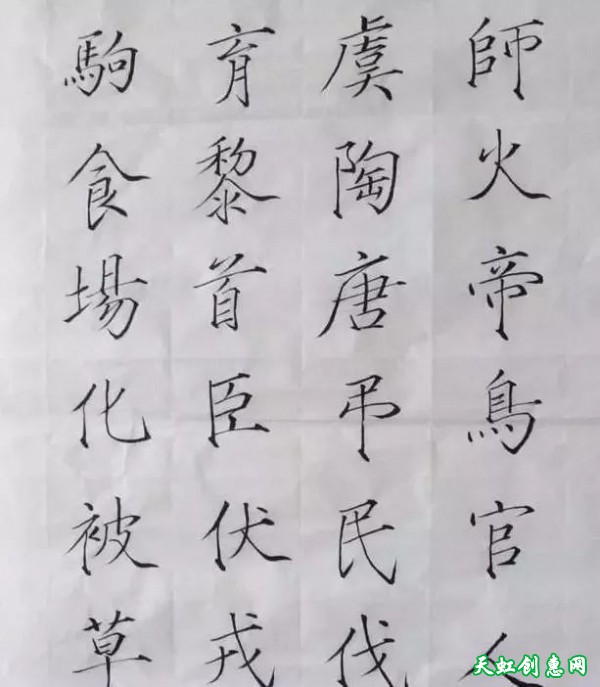 師火帝鳥官人
虞陶唐弔民伐
育黎首臣伏戎
駒食場化被草
天虹创惠网